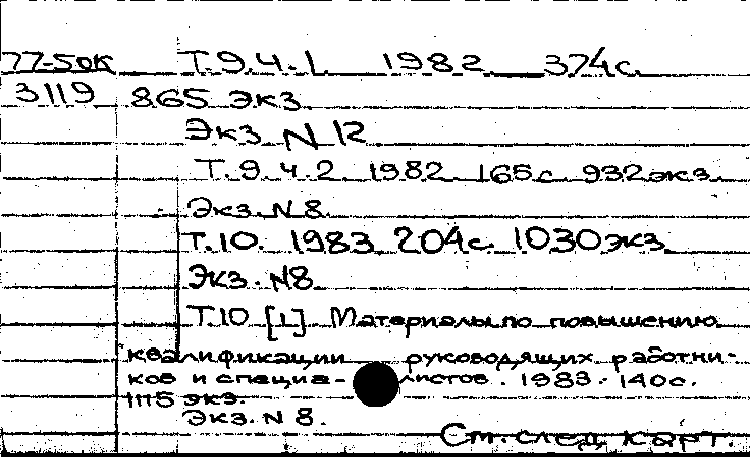 77-50к Т.9.ч.1. 1982 374с.
3119 865 экз.
Экз. N 12
Т.9.ч.2. 1982. 165с. 932экз.
Экз. N 8.
Т.10. 1983 204с. 1030экз.
Экз. N8.
Т.10 [1] Материалы по повышению
квалификации руководящих работни-
ков и специа- листов. 1983. 140с.
1115 экз.
Экз. N 8.
См. след. карт.